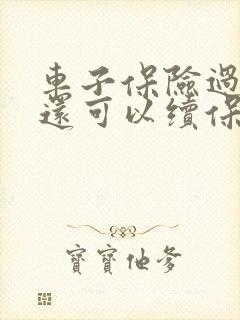 車子保險過
還可以續保
寶寶他爹